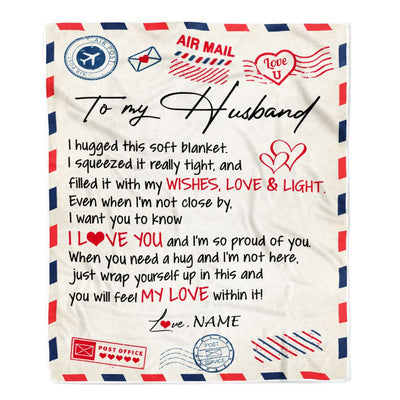 AIR POST
AIR MAIL
Love
U
To my Husband
I hugged this soft blanket.
I squeezed it really tight, and
filled it with my WISHES, LOVE & LIGHT.
Even when I'm not close by,
I want you to know
I L❤VE YOU and I'm so proud of you.
When you need a hug and I'm not here,
just wrap yourself up in this and
you will feel MY LOVE within it!
Love, NAME
POST OFFICE
POST
SERVICE